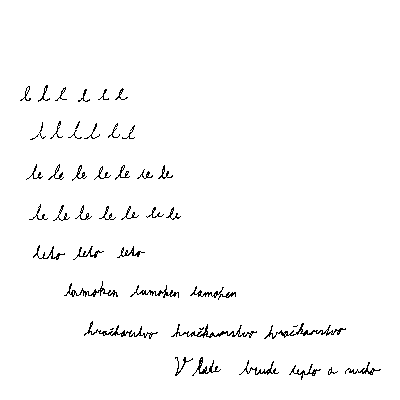 l l l l l l
l l l l l l
le le le le le le le
le le le le le le le
leto leto leto
lamohen lamohen lamohen
hračkarstvo hračkarstvo hračkarstvo
V lete bude teplo a sucho